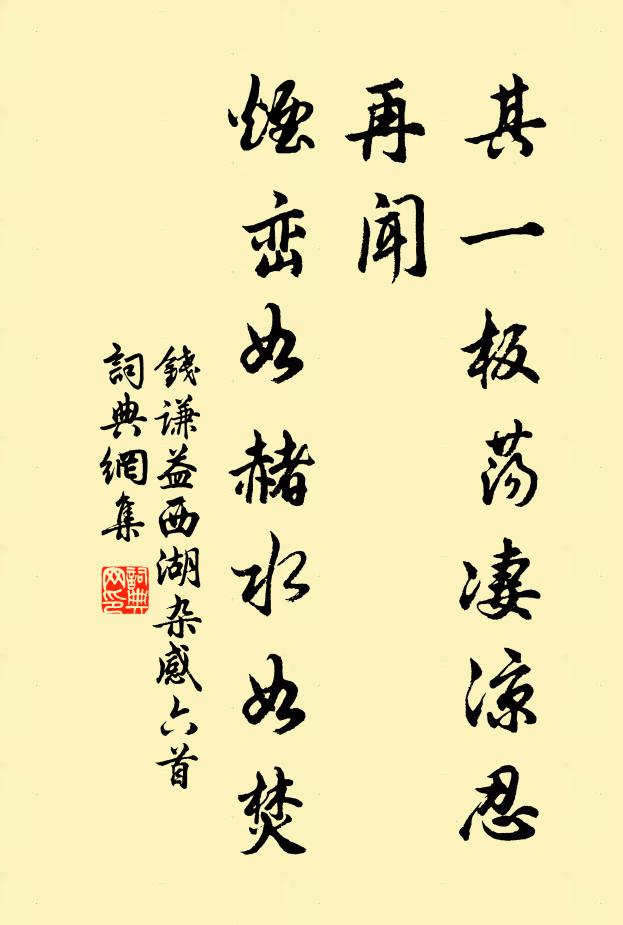 其一板荡凄凉忍
再闻
烟峦如赭水如焚
錢谦益西湖杂感六首
詞典網集
詞典网印